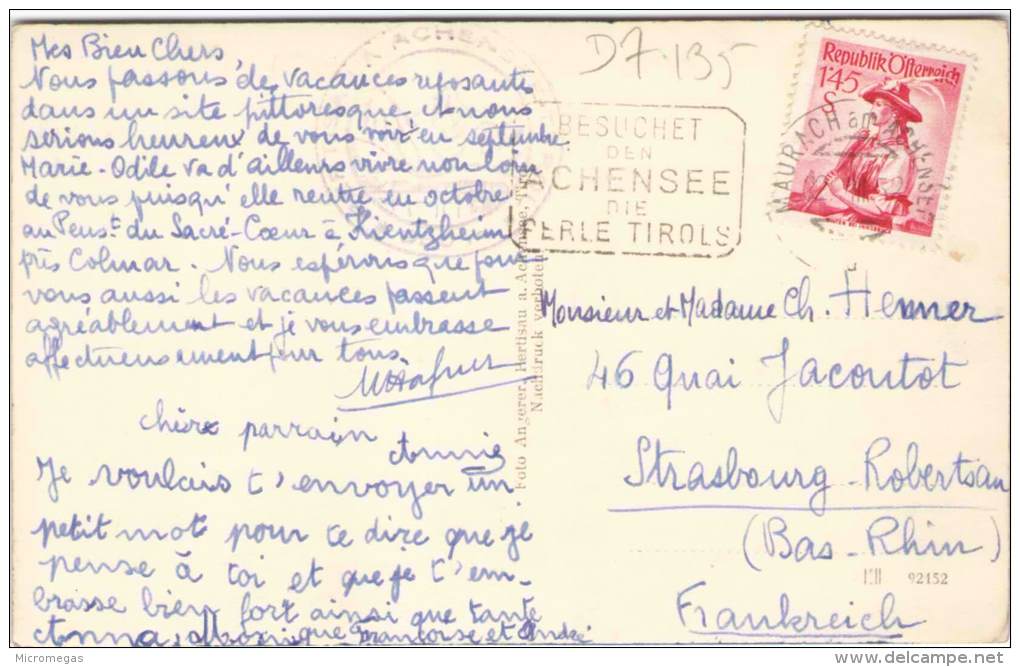 Mes Bien Chers
Nous passons de vacances reposantes
dans un site pittoresque et nous
serions heureux de vous voir en septembre
Marie-Odile va d'ailleurs vivre non loin
de vous puisqu'elle rentre en octobre
au Pens.t du Sacré-Cœur à Kientzheim
près Colmar. Nous espérons que pour
vous aussi les vacances passent
agréablement et je vous embrasse
affectueusement pour tous.
chère parrain
Annie
Je voulais t'envoyer un
petit mot pour te dire que je
pense à toi et que je t'em-
brasse bien fort ainsi que tante
Anna, que Françoise et André
D7.135
Republik Österreich
1'45
S
MAURACH am ACHENSEE
BESUCHET
DEN
ACHENSEE
DIE
PERLE TIROLS
Foto Angerer, Hertisau a. Achensee, Tirol
Nachdruck verboten
Monsieur et Madame Ch. Hemner
46 Quai Jacoutot
Strasbourg-Robertsau
(Bas-Rhin)
92152
Frankreich
Micromegas
delcampe.net